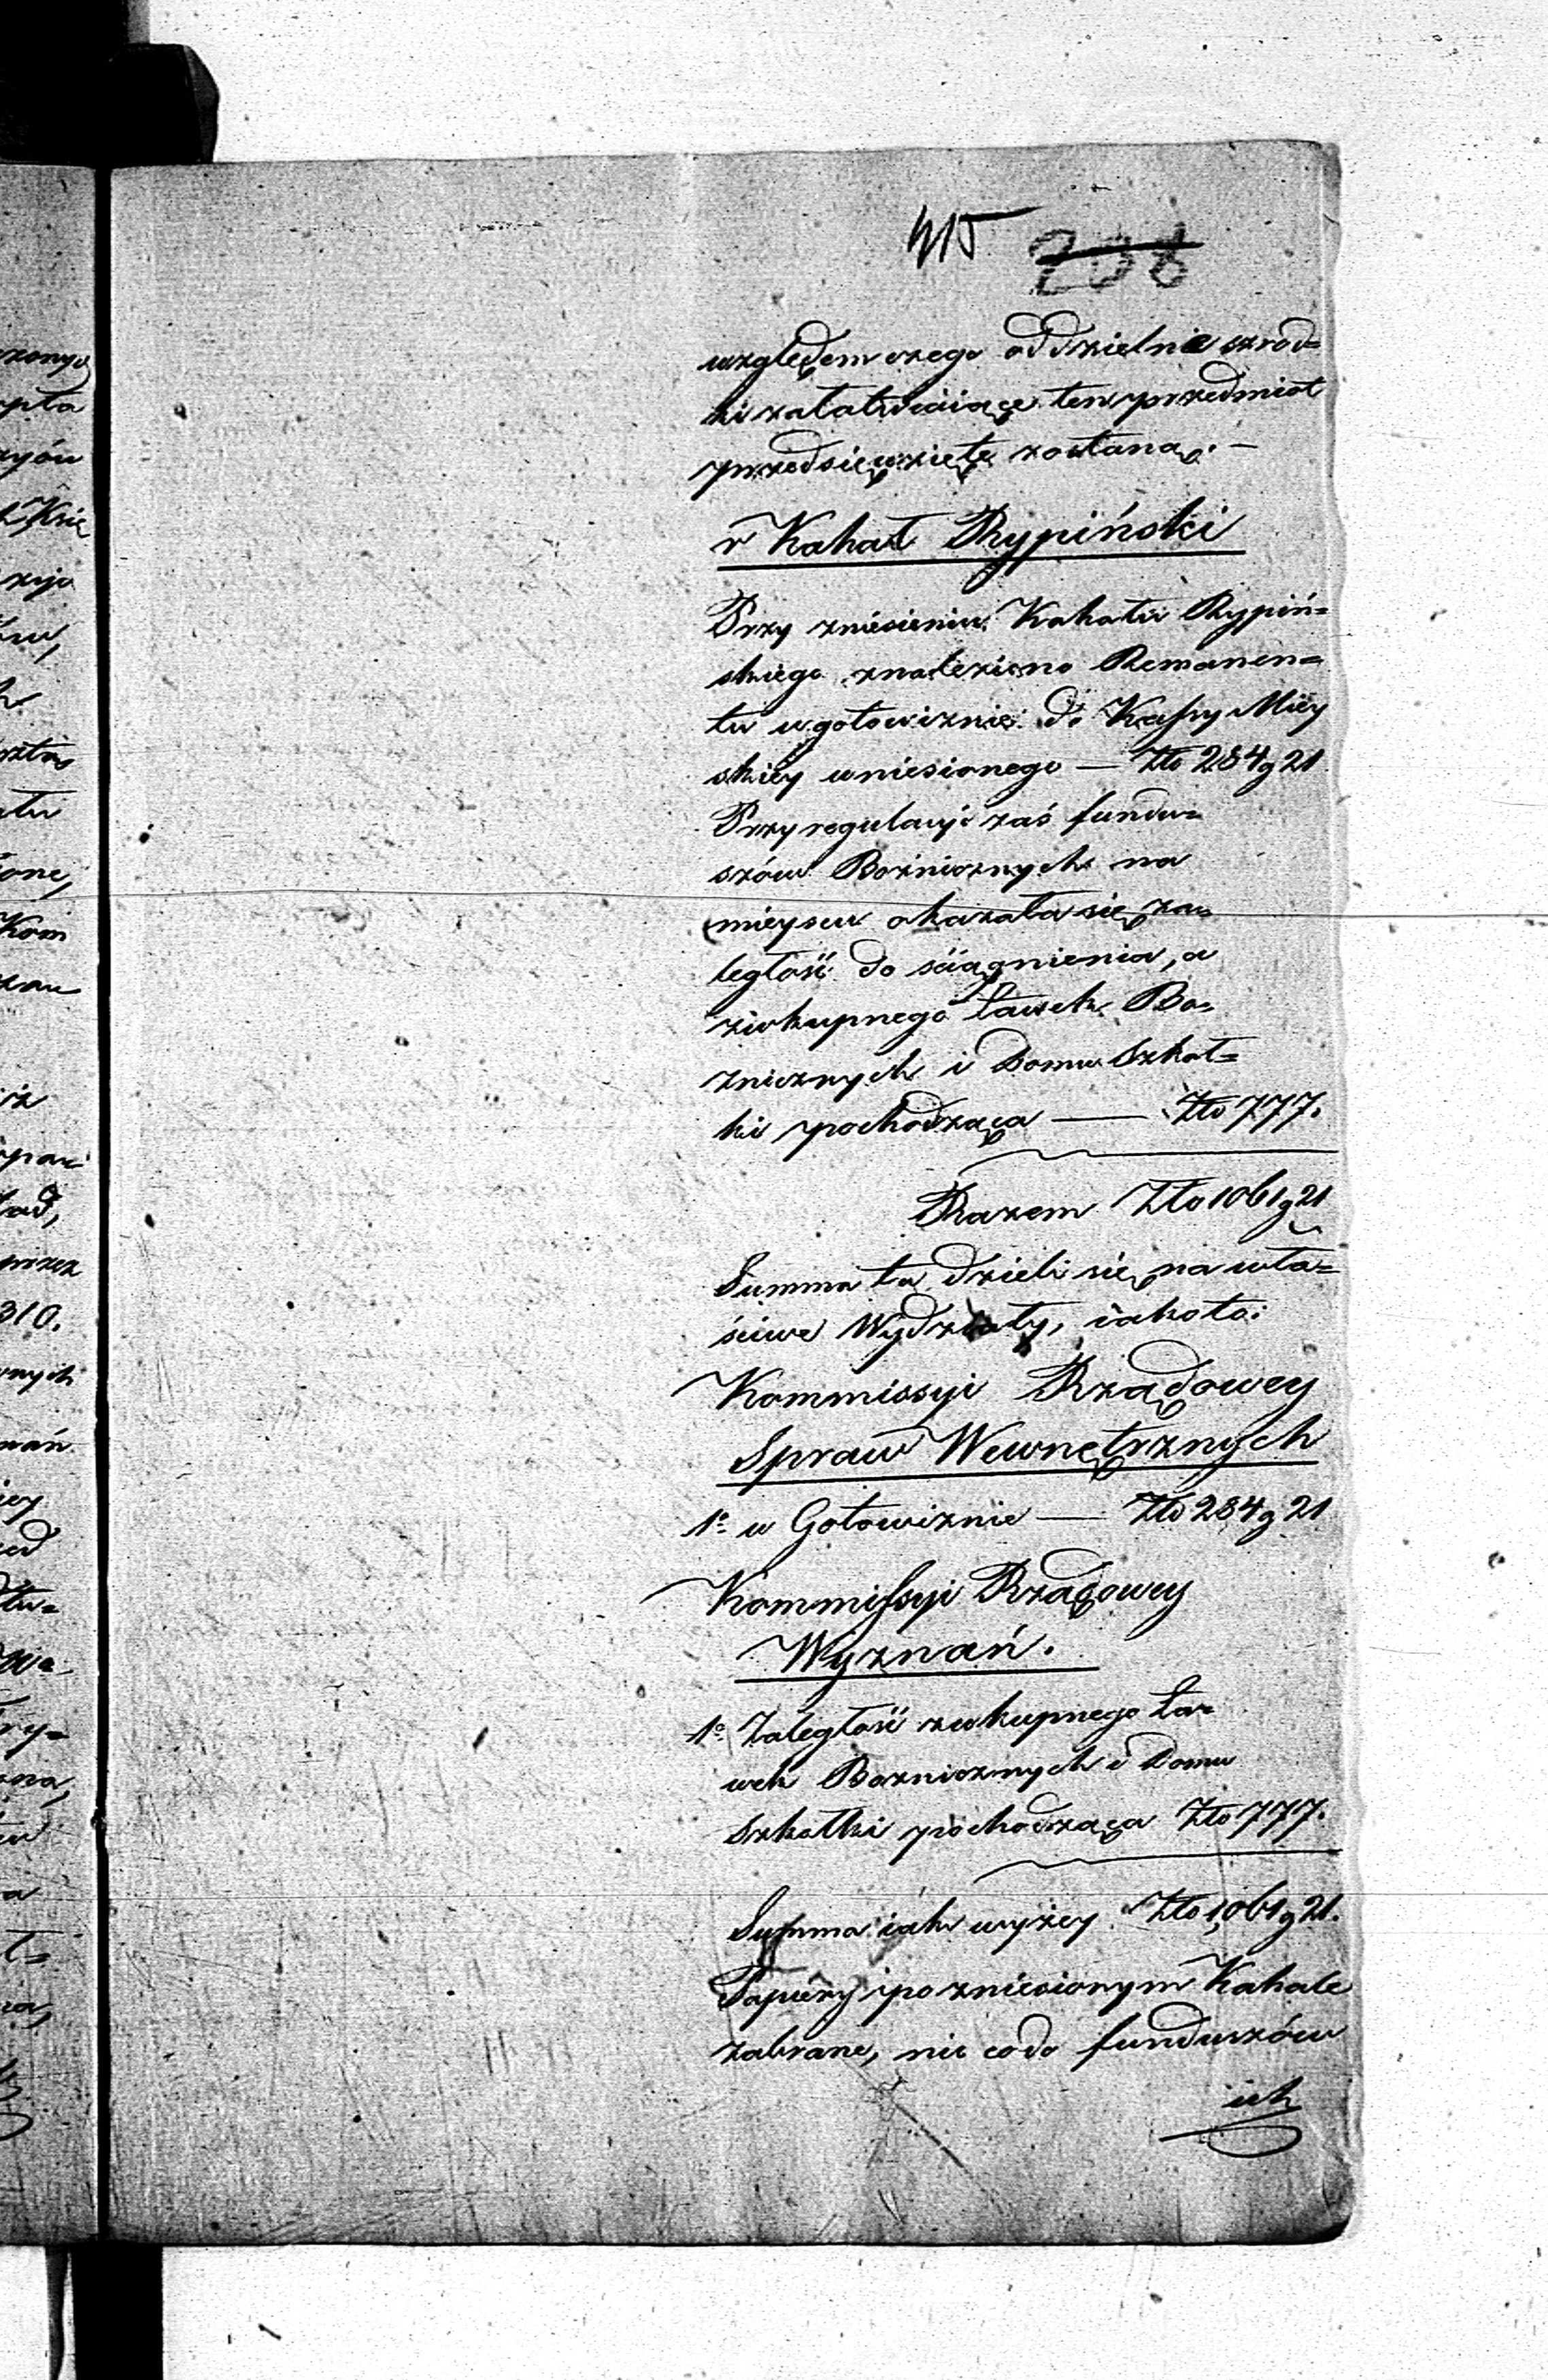 415 208
względem czego oddzielnie szrod=
ki załatwiaiące ten przedmiot
przedsięwzięte zostaną. —
r Kahał Rypiński
Przy zniesieniu Kahału Rypiń=
skiego znaleziono Remanen=
tu w gotowiznie do Kassy Miey
skiey wniesionego — Złto 284 g 21
Przy regulacyi zaś fundu=
szów Bożnicznych na
mieyscu okazała się za=
ległość do ściągnienia, a
zwkupnego ławek Bo=
żnicznych i Domu Szkoł=
ki pochodząca — Złto 777.
Razem Złto 1061 g 21
Summa ta dzieli się na wła=
ściwe Wydziały, iakoto:
Kommissyi Rządowey
Spraw Wewnętrznych
1o w Gotowiznie — Złto 284 g 21
Kommissyi Rządowey
Wyznań.
1o Zaległość zwkupnego ła=
wek Bożnicznych i Domu
Szkołki pochodząca Złto 777.
Summa iak wyżey Złto 1,061 g 21.
Papiery po zniesionym Kahale
zabrane, nic codo funduszów
ich